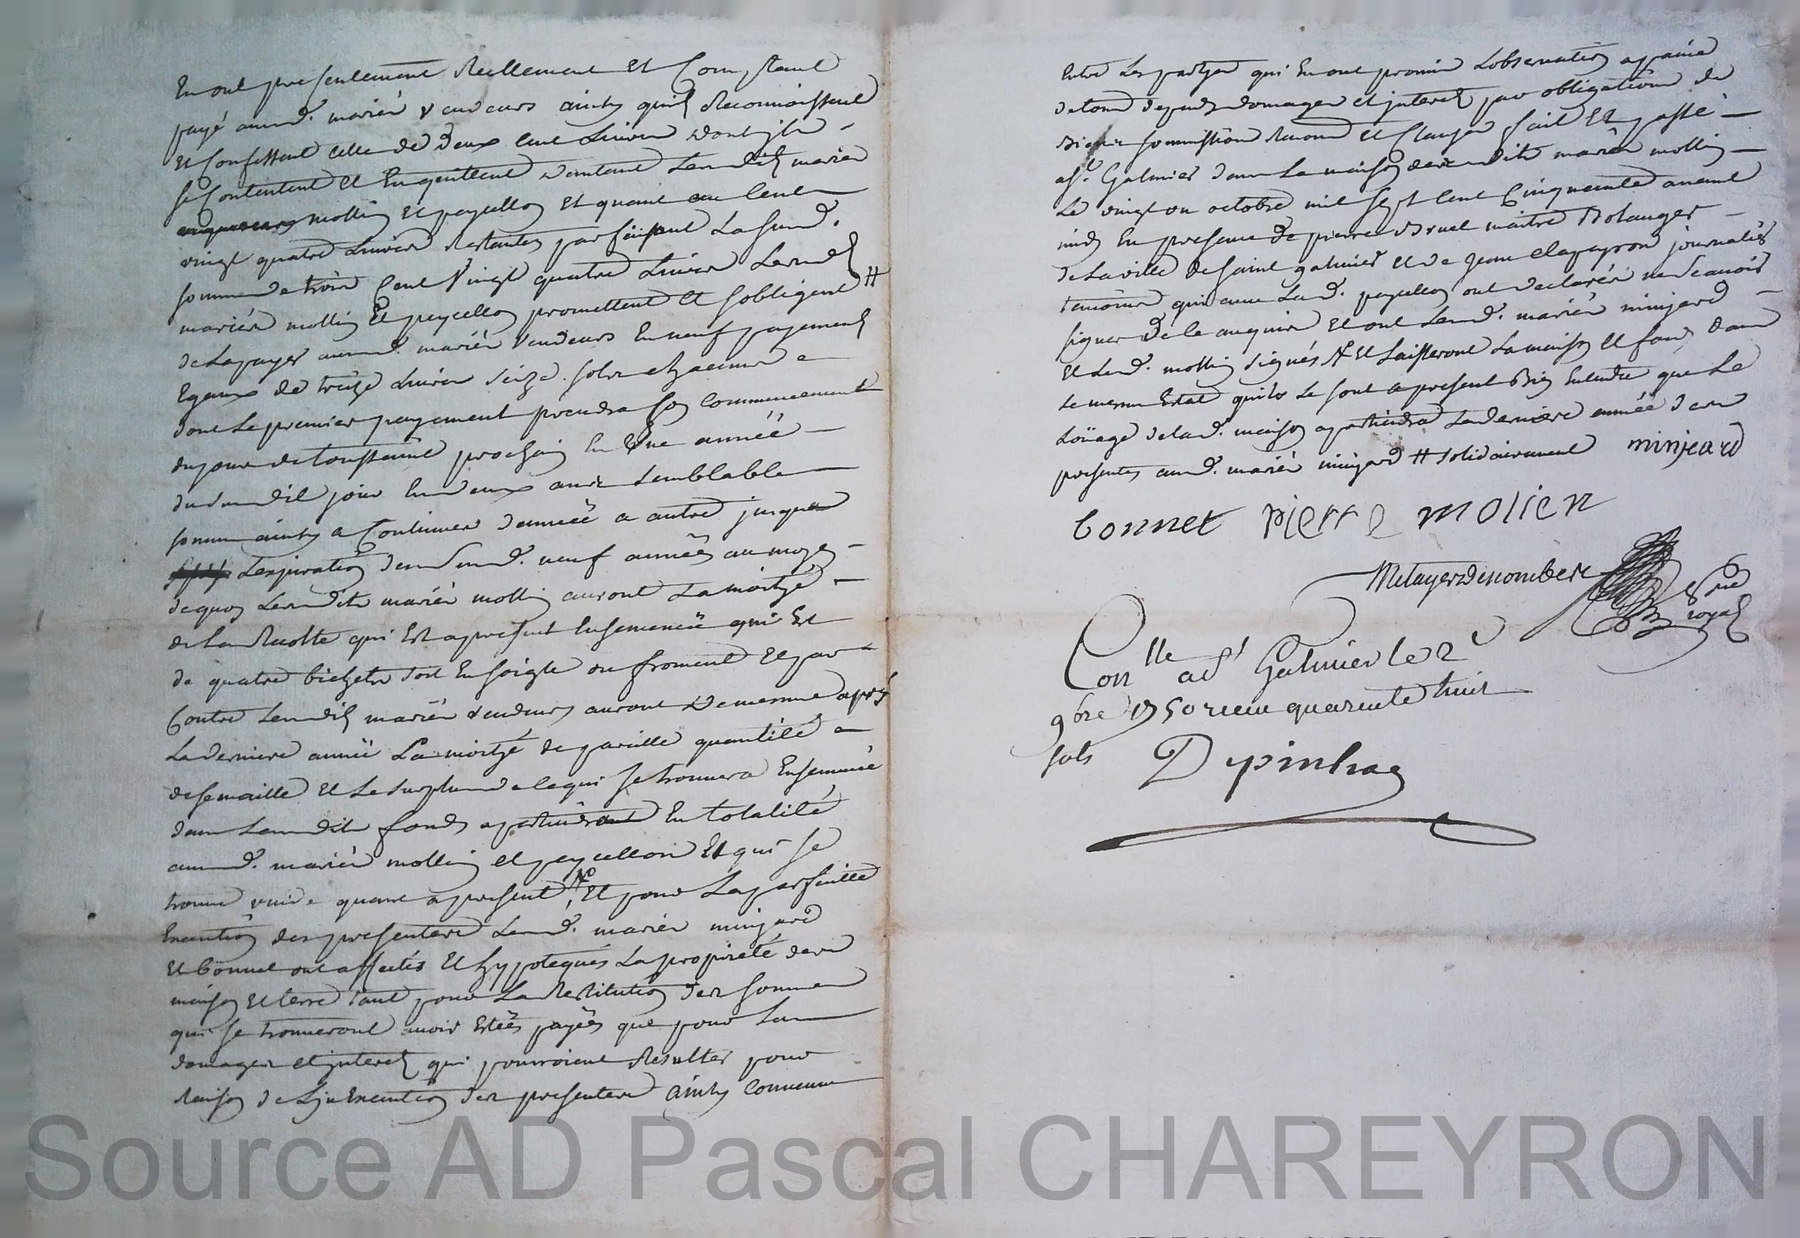 En ont presentement Reellement Et Comptant
payé auxd. mariés vendeurs ainsy quils Reconnoissent
Et Confessent celle de Deux Cent Livres dont ils
se Contentent Et En quittent d'autant Lesdits mariés
mollin Et peycellon Et quant au Cent
vingt quatre Livres Restantes parfaisant La susd.
somme de trois Cent Vingt quatre Livres Lesdits
mariés mollin Et peycellon promettent Et s'obligent #
de La payer auxd. mariés vendeurs En neuf payements
Egaux de treize Livres seize sols chacune
dont Le premier payement prendra son commencement
du jour de toussaint prochain En Une année
dudit jour En deux ans semblable
somme ainsy a Continuer d'année a autre jusqua
L'expiration desd. neuf années au moyen
de quoy Lesdits mariés mollin auront La moitié
de La Recolte qui Est apresent Ensemencée qui Est
de quatre bichets soit En soigle ou froment Et par
Contre Lesdits mariés vendeurs auront de mesme après
La derniere année La moitié de pareille quantité
de semaille Et Le surplus de ce qui se trouvera Ensemencé
dans Lesdits fonds apartiendra En totalité
auxd. mariés mollin Et peycellon Et qui se
trouve vuide quant apresent, Et pour La parfaitte
Execution des presentes Lesd. mariés minjard
Et bonnet ont affectés Et hypotequés La propriété des
maison Et terre tant pour La Restitution des sommes
qui se trouveront avoir Estées payées que pour Les
domages Et interets qui pourroient Resulter pour
Raison de L'inExecution des presentes ainsy convenu
Entre Les parties qui En ont promis L'observation a paine
de tous depens domages Et interets par obligation de
Biens soumissions Renon Et Clauses fait Et passé
a St. Galmier dans La maison desdits mariés mollin
Le vingt un octobre mil sept Cent Cinquante avant
midy En presence de pierre Bruel maitre Bolanger
de La ville de saint galmier Et de Jean Clapeyron journalier
temoins qui avec Lad. peycellon ont declarés ne scavoir
signer de ce enquis Et ont Lesd. mariés minjard
Et Led. mollin signés Et Laisseront La maison Et fonds dans
Le mesme Estat quils Le sont apresent Bien Entendu que Le
Loüage de lad. maison apartiendra La derniere année des
presentes auxd. mariés minjard # solidairement minjeard
bonnet pierre molien
Metayerdescombe
nre
royal
Conlle a St Galmier le 2e
9bre 1750 receu quarente huit
sols Depinhac
Source AD Pascal CHAREYRON